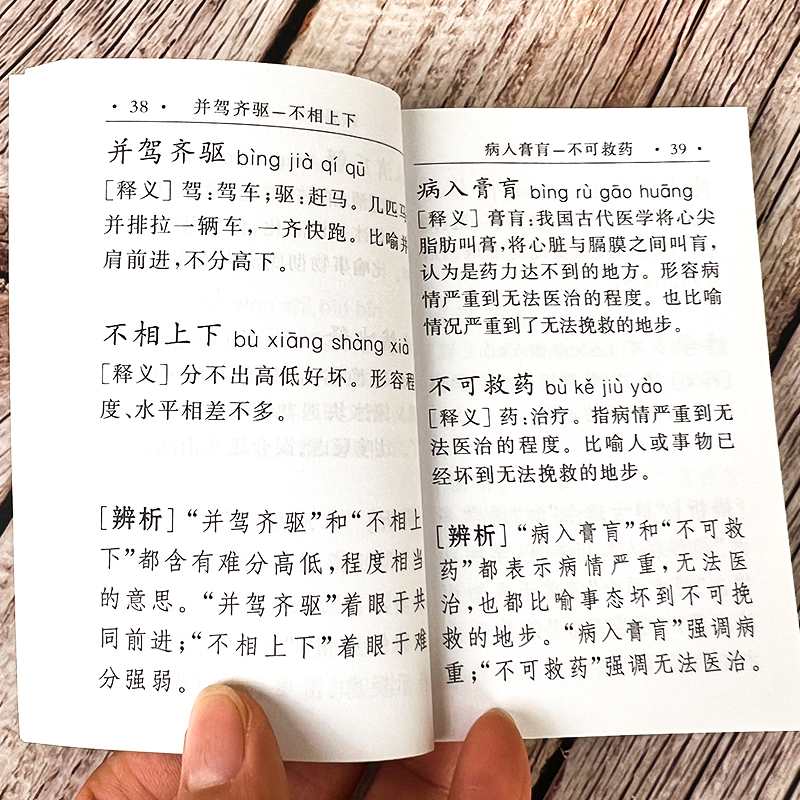 · 38 · 并驾齐驱—不相上下
并驾齐驱 bìng jià qí qū
[释义] 驾:驾车;驱:赶马。几匹马
并排拉一辆车，一齐快跑。比喻并
肩前进,不分高下。
不相上下 bù xiāng shàng xià
[释义] 分不出高低好坏。形容程
度、水平相差不多。
[辨析] “并驾齐驱”和“不相上
下”都含有难分高低,程度相当
的意思。“并驾齐驱”着眼于共
同前进;“不相上下”着眼于难
分强弱。
病入膏肓—不可救药 · 39 ·
病入膏肓 bìng rù gāo huāng
[释义] 膏肓:我国古代医学将心尖
脂肪叫膏,将心脏与膈膜之间叫肓,
认为是药力达不到的地方。形容病
情严重到无法医治的程度。也比喻
情况严重到了无法挽救的地步。
不可救药 bù kě jiù yào
[释义] 药:治疗。指病情严重到无
法医治的程度。比喻人或事物已
经坏到无法挽救的地步。
[辨析] “病入膏肓”和“不可救
药”都表示病情严重,无法医
治,也都比喻事态坏到不可挽
救的地步。“病入膏肓”强调病
重;“不可救药”强调无法医治。